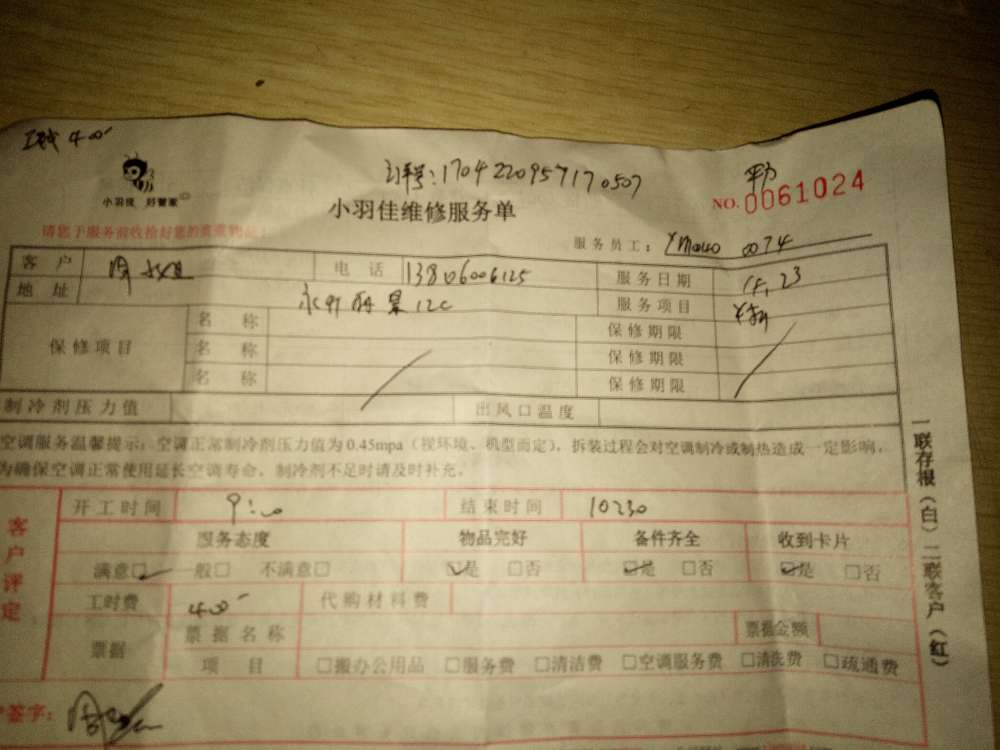 400
小羽佳 好管家
17042209571 70507
NO.0061024
小羽佳维修服务单
请您于服务前收拾好您的贵重物品!
服务员工： 0074
客户 周 电话 13806006125 服务日期 23
地址 景12C 服务项目
保修项目 名称 保修期限
名称 保修期限
名称 保修期限
制冷剂压力值 出风口温度
空调服务温馨提示：空调正常制冷剂压力值为0.45mpa（视环境、机型而定），拆装过程会对空调制冷或制热造成一定影响，
为确保空调正常使用延长空调寿命，制冷剂不足时请及时补充。
客户评定
开工时间 9:00 结束时间 10:30
服务态度 物品完好 备件齐全 收到卡片
满意□ 一般□ 不满意□ □是 □否 □是 □否 □是 □否
工时费 400 代购材料费
票据 票据名称 票据金额
项目 □搬办公用品 □服务费 □清洁费 □空调服务费 □清洗费 □疏通费
签字： 周
一联存根（白）二联客户（红）